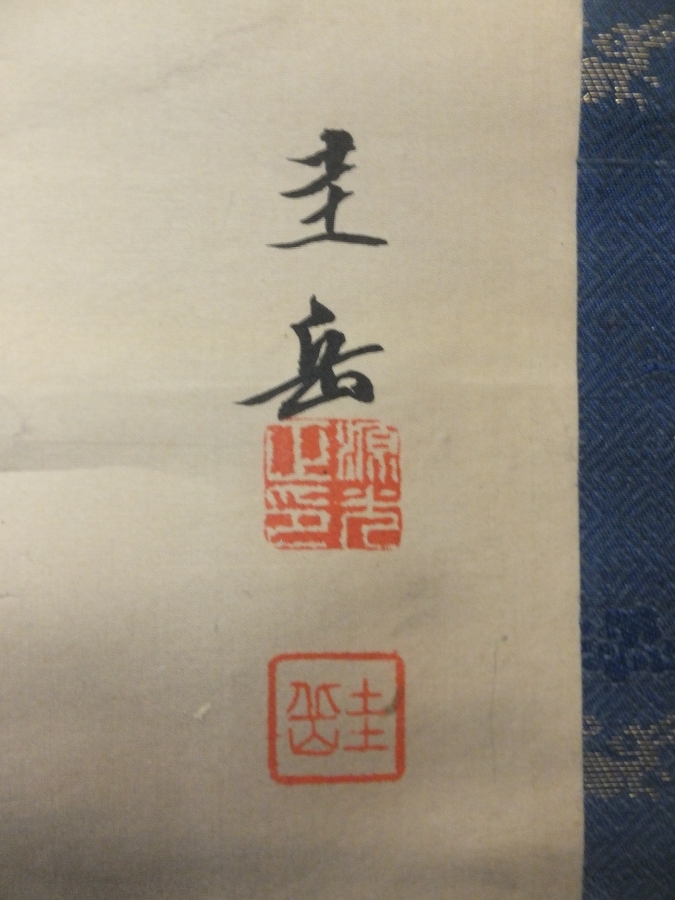 圭岳
源光
之印
圭岳